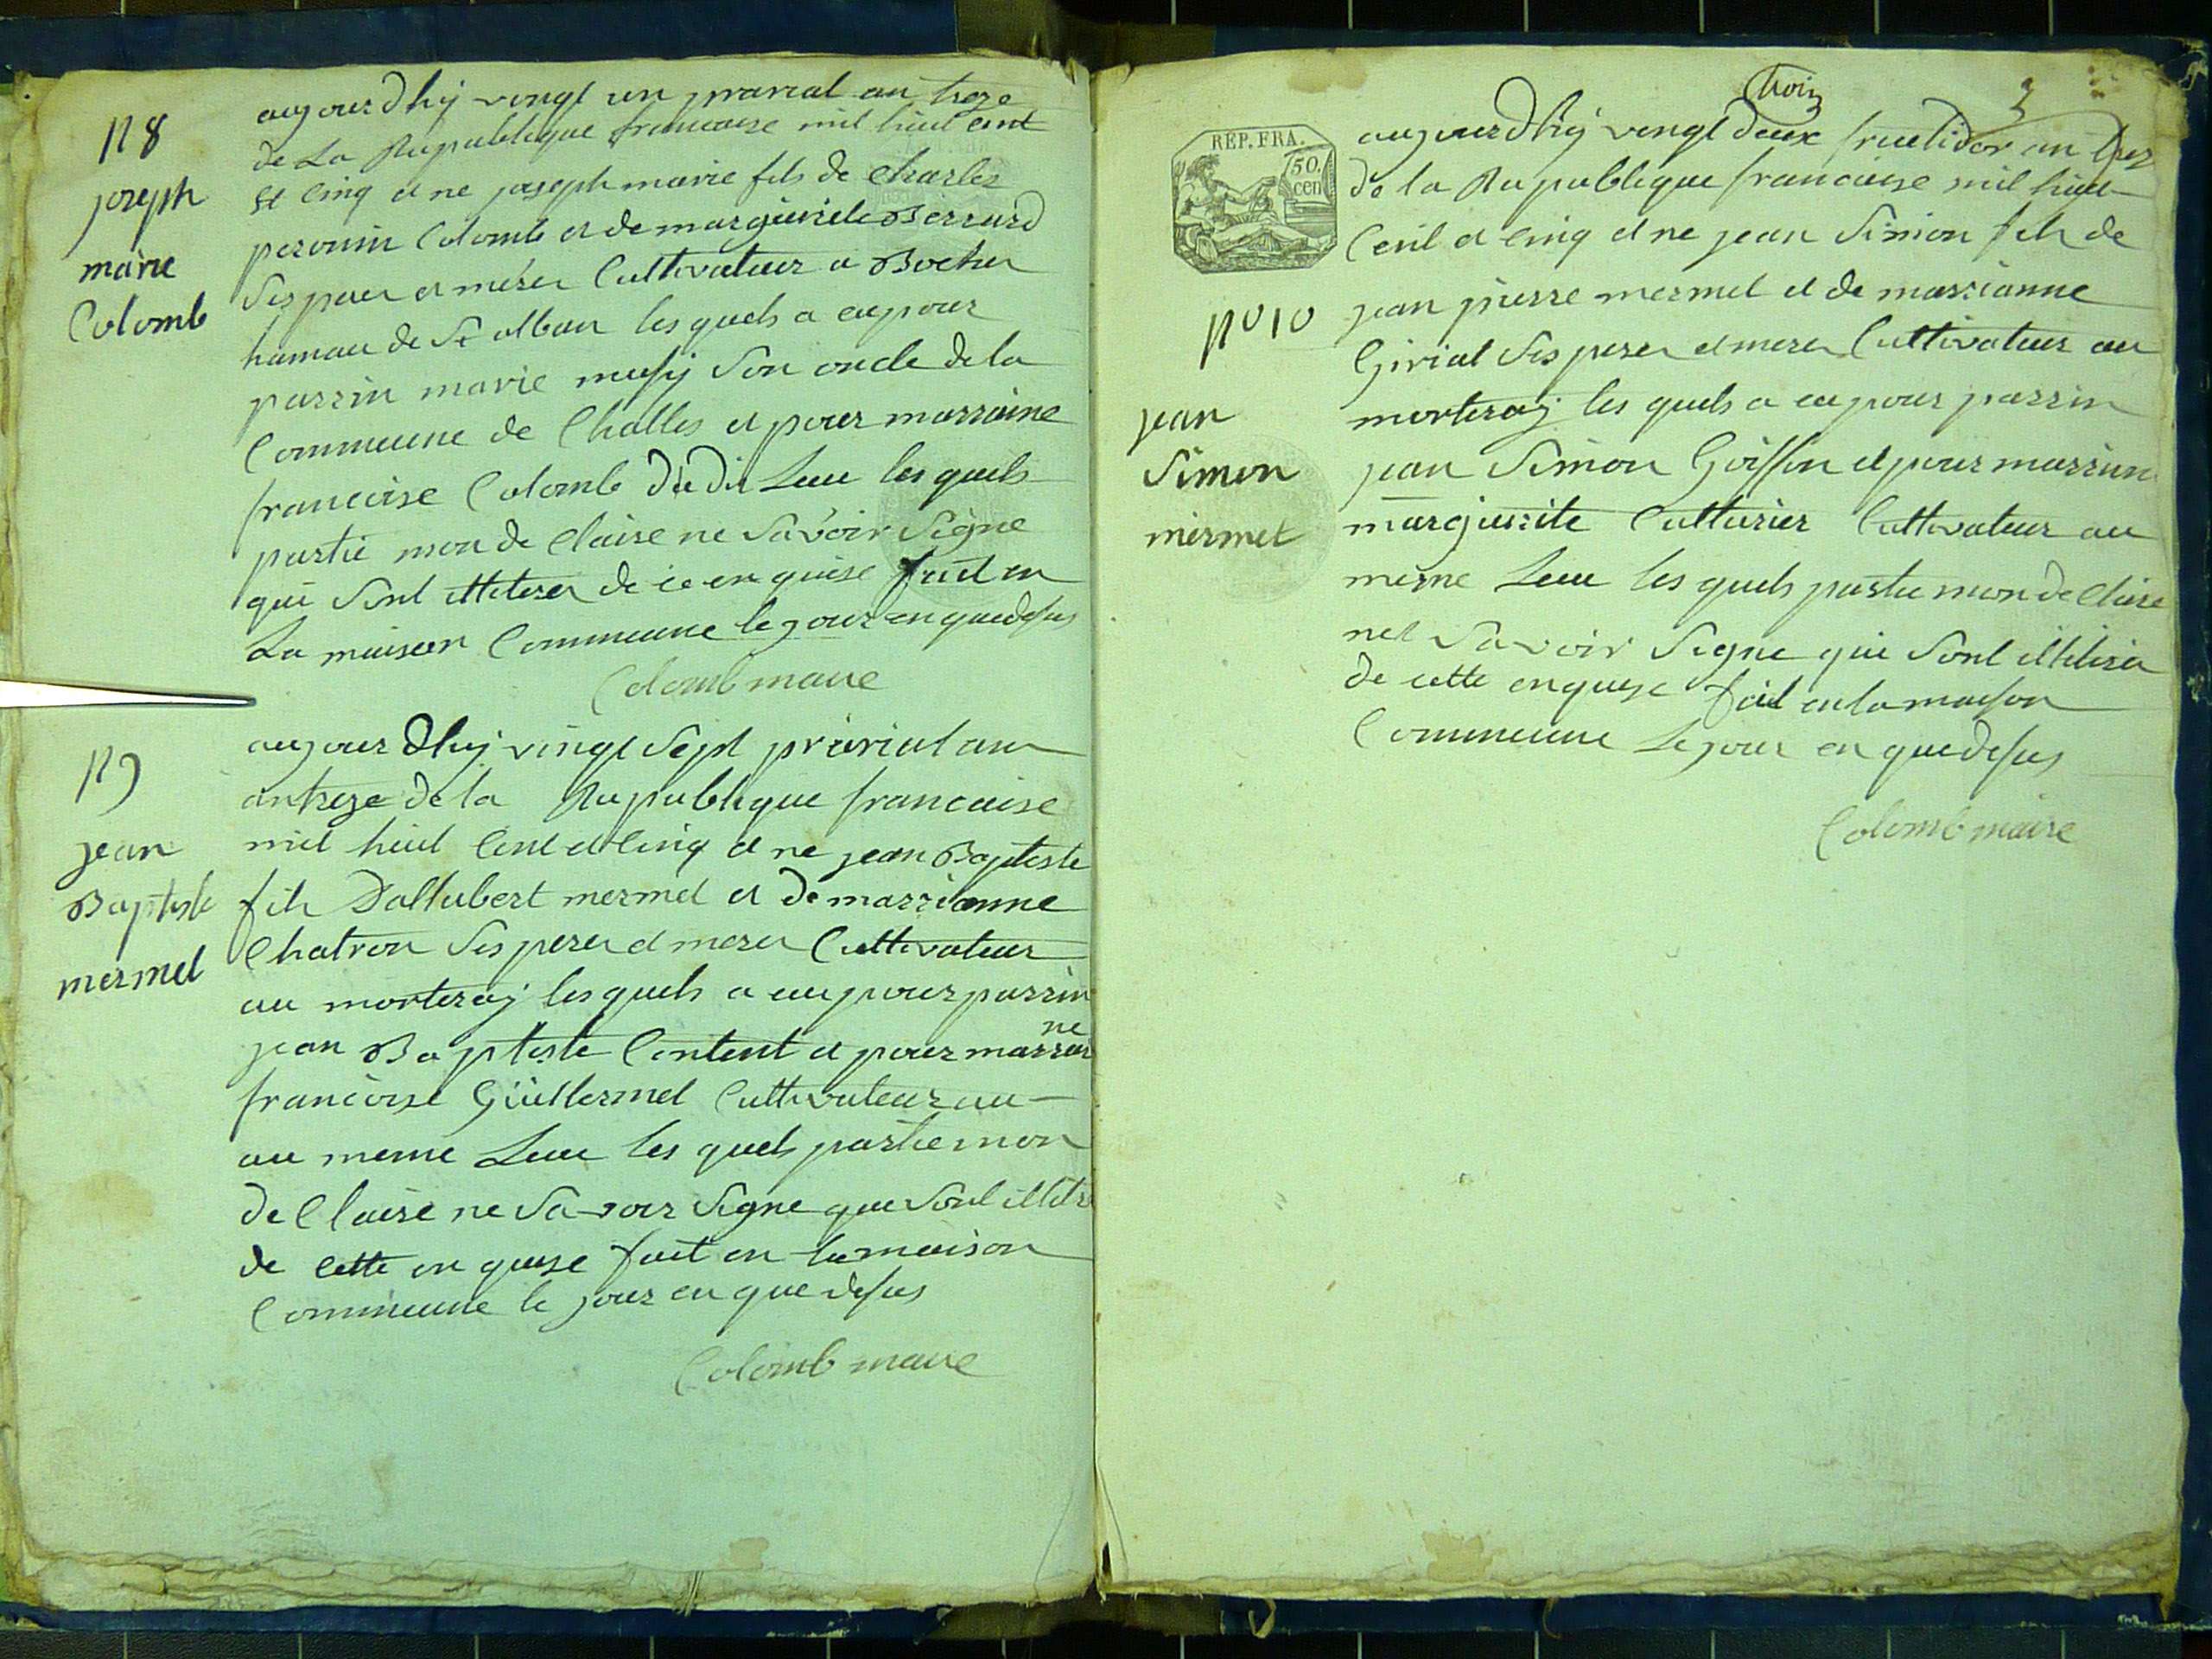 N 8
joseph
marie
Colomb
aujourdhij vingt un prarial an treze
de La Republique francaise mil huit cent
et cinq et ne joseph marie fils de Charles
peronin Colomb et de margurite Berrurd
Ses perer et mérer Cultivateur a Bocher
hamau de St alban les quels a eu pour
parrin marie musy Son oncle de la
Commeune de Challes et pour marraine
francoise Colomb du Dit Leu les quels
partie mon de Claire ne Savoir Signe
qui Sont illiterer de ce en quise fait en
La maison Commeune le jour en que desus
Colomb maire
N 9
jean
Baptiste
mermet
aujourdhij vingt Sept prairial an
an treze de la Republique francaise
mil huit Cent et Cinq et ne jean Baptiste
fils D'allubert mermet et de marrianne
Chatron Ses perer et merer Cultivateur
au morteraj les quels a eu pour parrin
jean Baptiste Content et pour marrai
ne
francoise Guillermet Cultivateur au
au meme Leu les quels partie mon
de Claire ne Savoir Signe que Sont illitre
de cette en quise fait en la maison
Commeune le jour en que desus
Colomb maire
trois
3
REP. FRA.
50.
cen
N° 10
jean
Simon
mermet
aujourdhij vingt deux fructidor an trez
de la Republique francaise mil huit
Cent et cinq et ne jean Simion fils de
jean pierre mermet et de marrianne
Girial Ses perer et merer Cultivateur au
morteraj les quels a eu pour parrin
jean Simon Goiffon et pour marrain
margurite Cutturier Cultivateur au
meme Leu les quels partie mon de Claire
net Savoir Signe qui Sont illiterer
de cette en quise fait en la maison
Commeune Le jour en que desus
Colomb maire